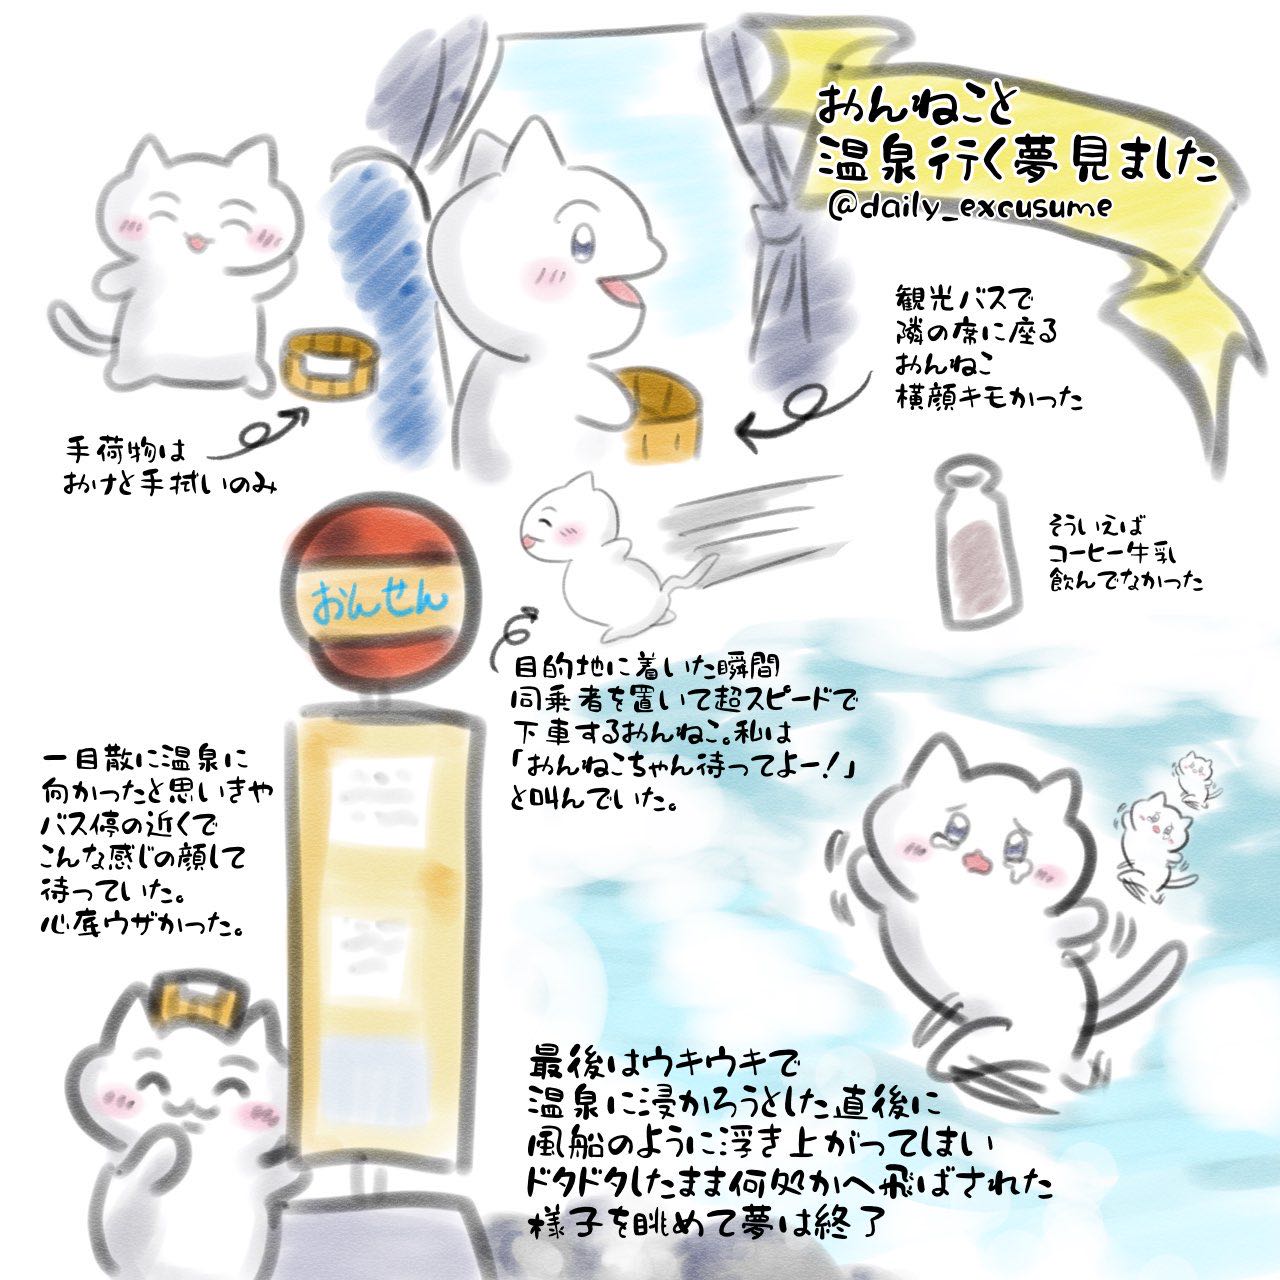 おんねこと
温泉行く夢見ました
@daily_excusume
観光バスで
隣の席に座る
おんねこ
横顔キモかった
手荷物は
おけと手拭いのみ
そういえば
コーヒー牛乳
飲んでなかった
おんせん
目的地に着いた瞬間
同乗者を置いて超スピードで
下車するおんねこ。私は
「おんねこちゃん待ってよー!」
と叫んでいた。
一目散に温泉に
向かったと思いきや
バス停の近くで
こんな感じの顔して
待っていた。
心底ウザかった。
最後はウキウキで
温泉に浸かろうとした直後に
風船のように浮き上がってしまい
ドタドタしたまま何処かへ飛ばされた
様子を眺めて夢は終了